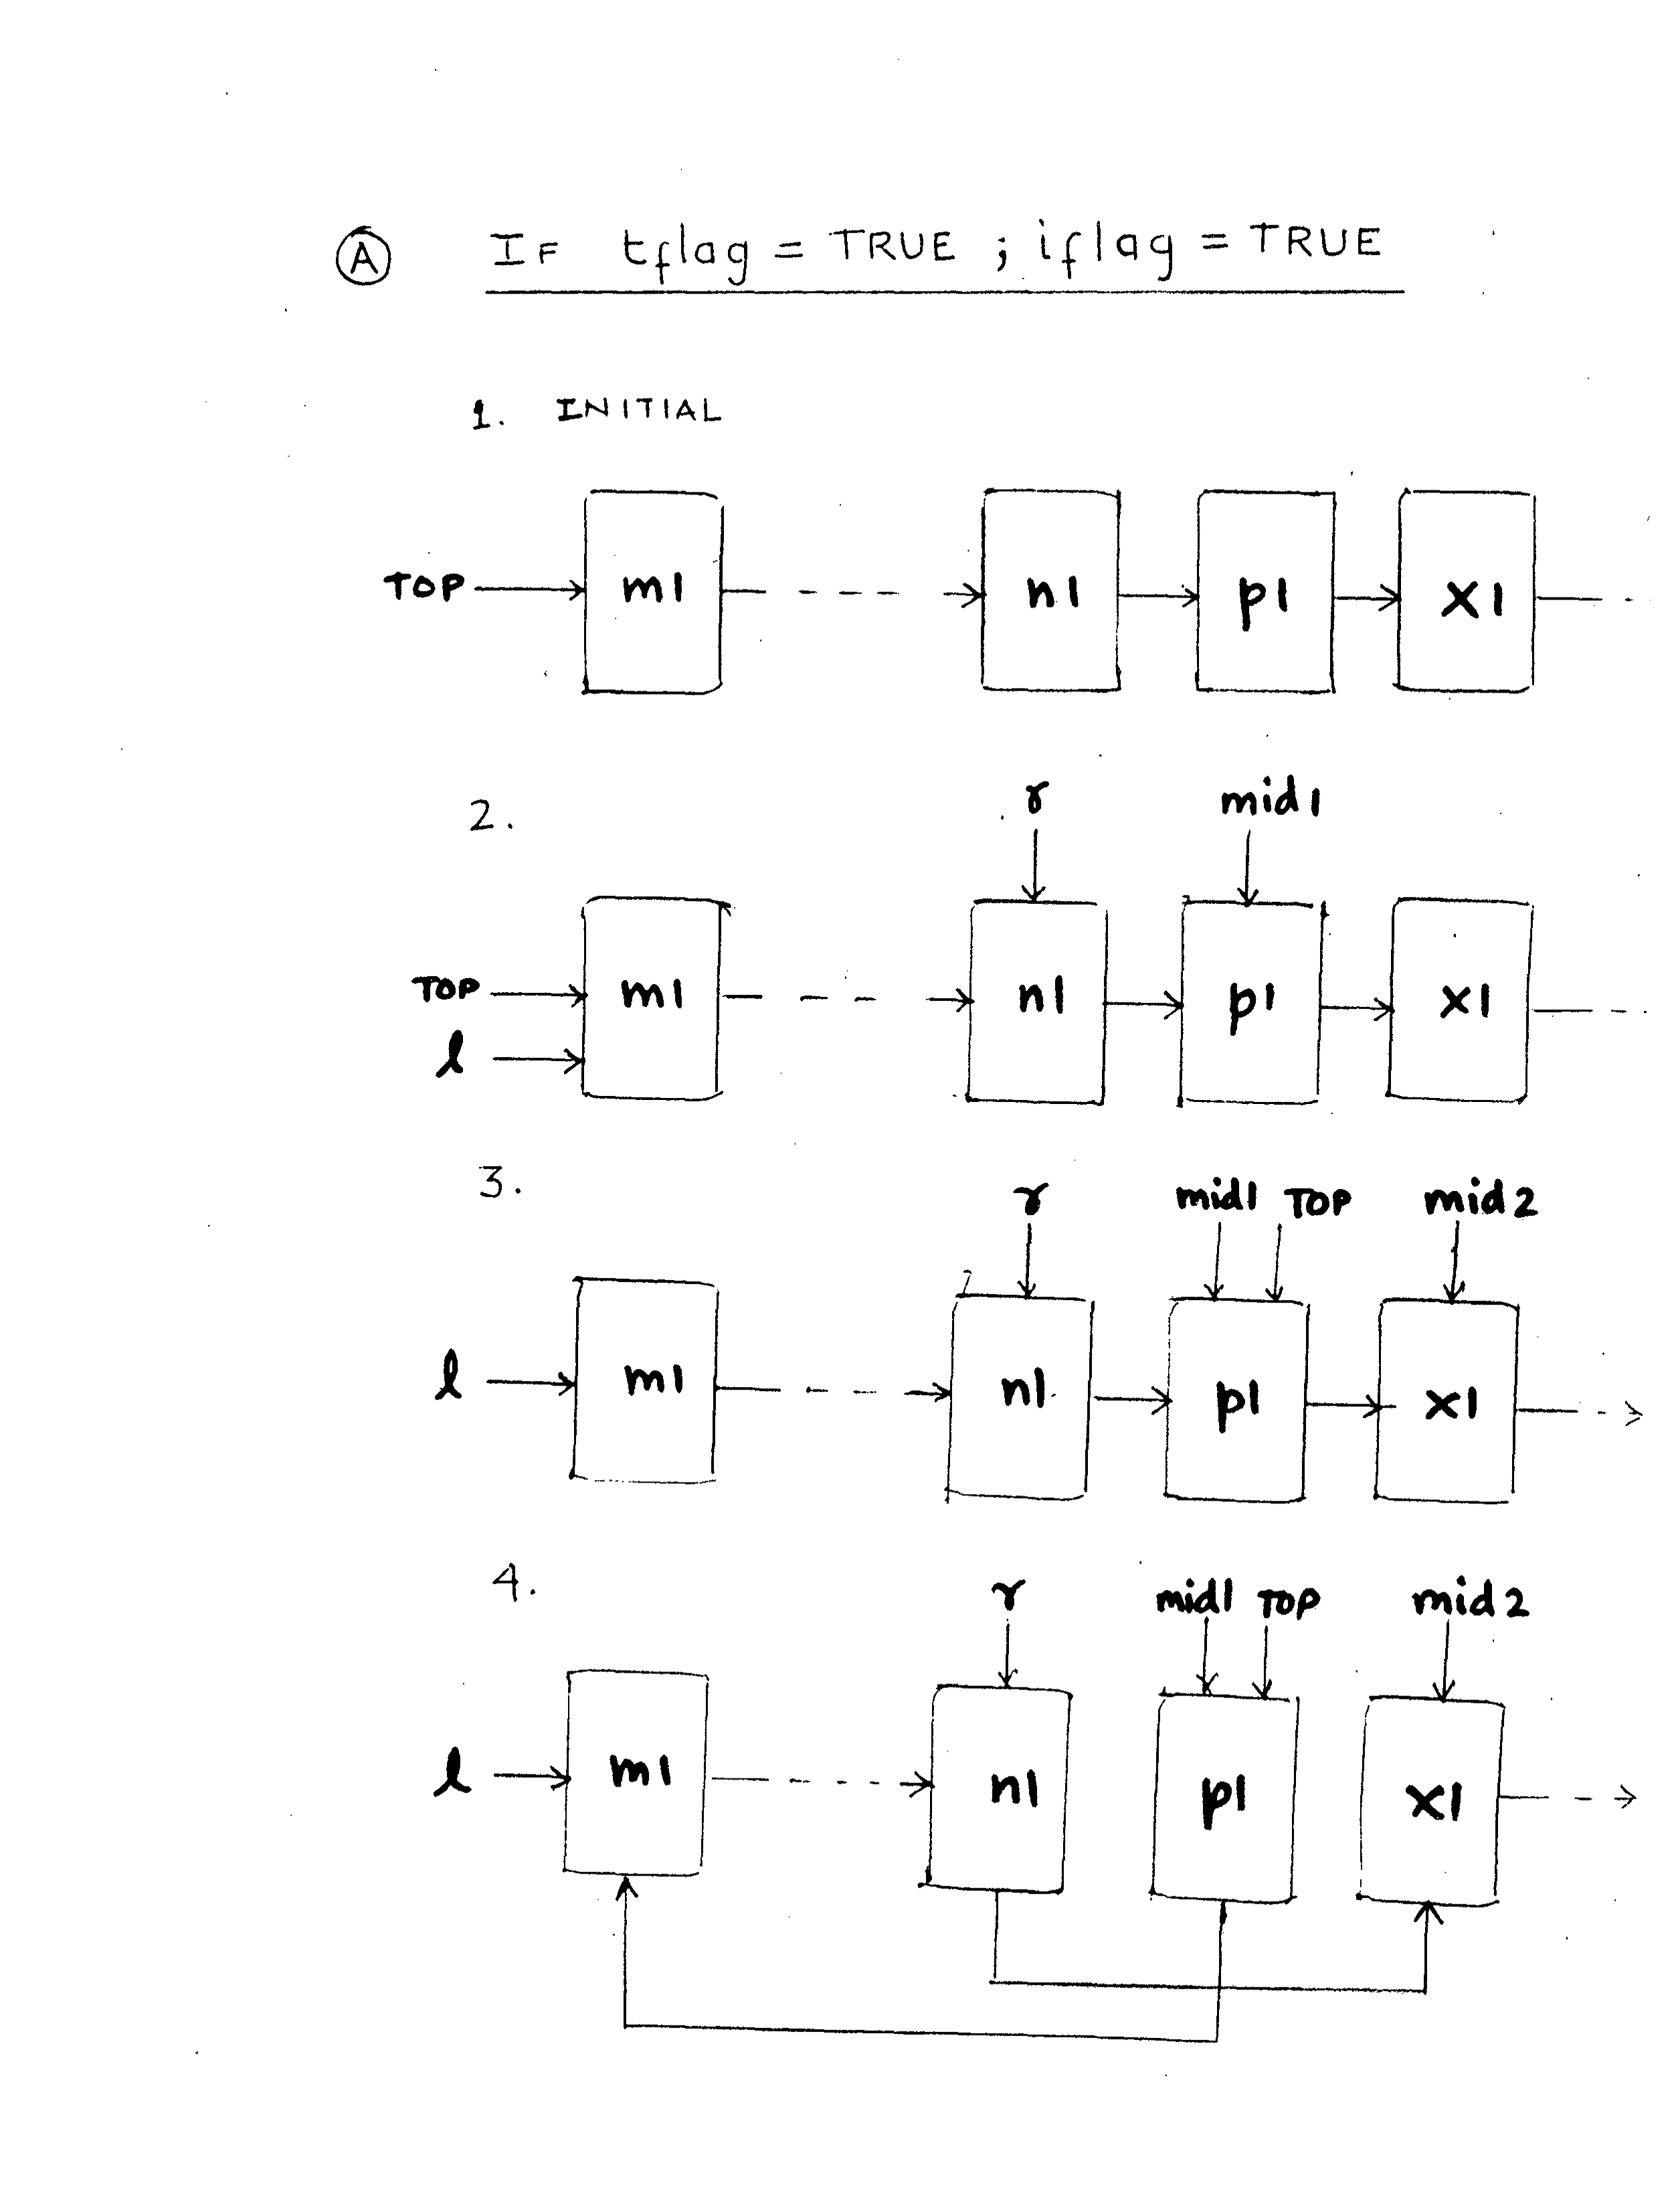 A IF tflag = TRUE ; iflag = TRUE
1. INITIAL
TOP m1 n1 p1 x1
2. r mid1
TOP m1 n1 p1 x1
l
3. r mid1 TOP mid2
l m1 n1 p1 x1
4. r mid1 TOP mid2
l m1 n1 p1 x1